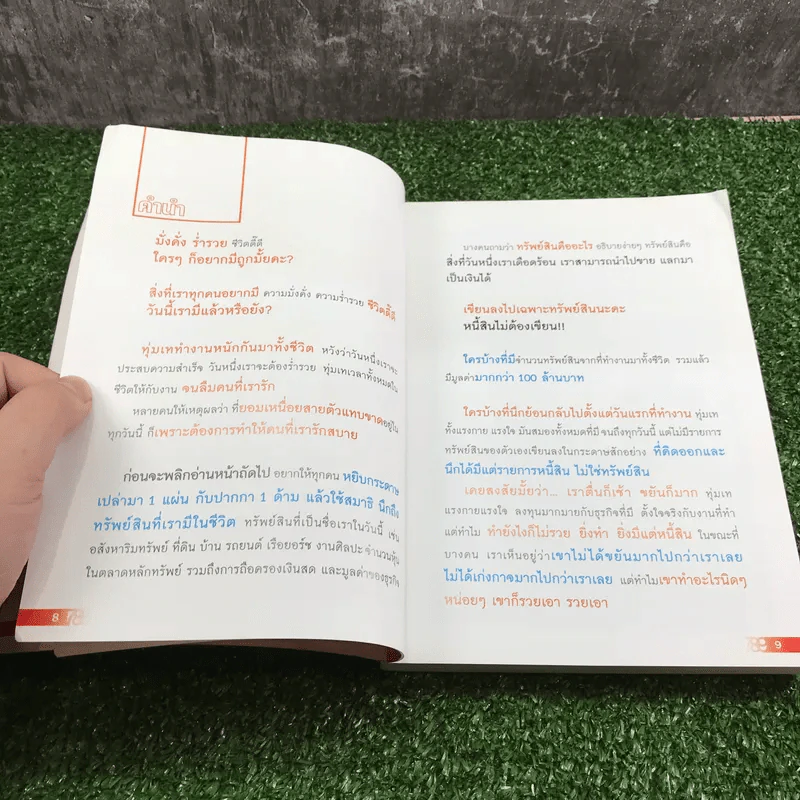 คำนำ
มั่งคั่ง ร่ำรวย ชีวิตดี๊ดี
ใครๆ ก็อยากมีถูกมั้ยคะ?
สิ่งที่เราทุกคนอยากมี ความมั่งคั่ง ความร่ำรวย ชีวิตดี๊ดี
วันนี้เรามีแล้วหรือยัง?
ทุ่มเททำงานหนักกันมาทั้งชีวิต หวังว่าวันหนึ่งเราจะ
ประสบความสำเร็จ วันหนึ่งเราจะต้องร่ำรวย ทุ่มเทเวลาทั้งหมดใน
ชีวิตให้กับงาน จนลืมคนที่เรารัก
หลายคนให้เหตุผลว่า ที่ยอมเหนื่อยสายตัวแทบขาดอยู่ใน
ทุกวันนี้ ก็เพราะต้องการทำให้คนที่เรารักสบาย
ก่อนจะพลิกอ่านหน้าถัดไป อยากให้ทุกคน หยิบกระดาษ
เปล่ามา 1 แผ่น กับปากกา 1 ด้าม แล้วใช้สมาธิ นึกถึง
ทรัพย์สินที่เรามีในชีวิต ทรัพย์สินที่เป็นชื่อเราในวันนี้ เช่น
อสังหาริมทรัพย์ ที่ดิน บ้าน รถยนต์ เรือยอร์ช งานศิลปะ จำนวนหุ้น
ในตลาดหลักทรัพย์ รวมถึงการถือครองเงินสด และมูลค่าของธุรกิจ
8
บางคนถามว่า ทรัพย์สินคืออะไร อธิบายง่ายๆ ทรัพย์สินคือ
สิ่งที่วันหนึ่งเราเดือดร้อน เราสามารถนำไปขาย แลกมา
เป็นเงินได้
เขียนลงไปเฉพาะทรัพย์สินนะคะ
หนี้สินไม่ต้องเขียน!!
ใครบ้างที่มีจำนวนทรัพย์สินจากที่ทำงานมาทั้งชีวิต รวมแล้ว
มีมูลค่ามากกว่า 100 ล้านบาท
ใครบ้างที่นึกย้อนกลับไปตั้งแต่วันแรกที่ทำงาน ทุ่มเท
ทั้งแรงกาย แรงใจ มันสมองทั้งหมดที่มี จนถึงทุกวันนี้ แต่ไม่มีรายการ
ทรัพย์สินของตัวเองเขียนลงในกระดาษสักอย่าง ที่คิดออกและ
นึกได้มีแต่รายการหนี้สิน ไม่ใช่ทรัพย์สิน
เคยสงสัยมั้ยว่า... เราตื่นก็เช้า ขยันก็มาก ทุ่มเท
ทั้งแรงกายแรงใจ ลงทุนมากมายกับธุรกิจที่มี ตั้งใจจริงกับงานที่ทำ
แต่ทำไม ทำยังไงก็ไม่รวย ยิ่งทำ ยิ่งมีแต่หนี้สิน ในขณะที่
บางคน เราเห็นอยู่ว่าเขาไม่ได้ขยันมากไปกว่าเราเลย
ไม่ได้เก่งกาจมากไปกว่าเราเลย แต่ทำไมเขาทำอะไรนิดๆ
หน่อยๆ เขาก็รวยเอา รวยเอา
9